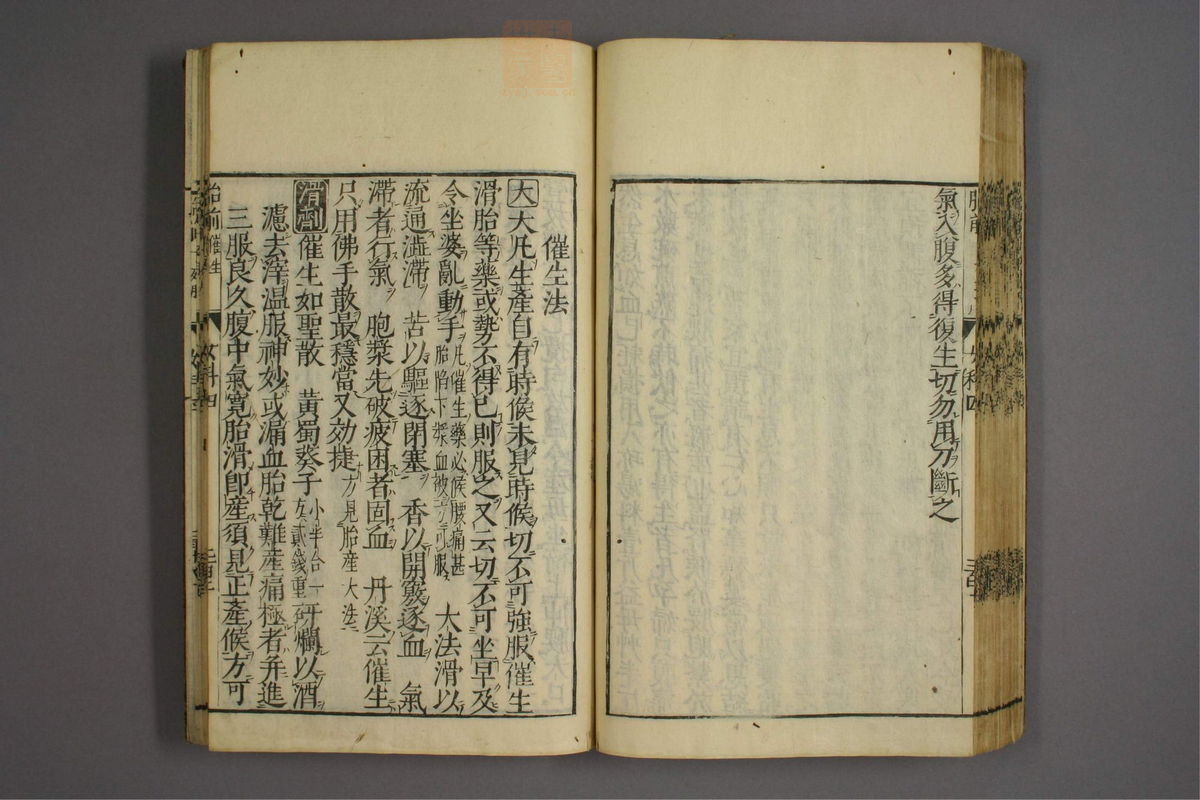 氣入腹多得復生切勿用刀斷之
催生法
大大凡生產自有時候未見時候切不可強服催生
滑胎等藥或勢不得已則服之又云切不可坐早及
令坐婆亂動手凡催生藥必候腰痛甚胎陷下漿血破方可服大法滑以
流通澁滯苦以驅逐閉塞香以開竅逐血氣
滯者行氣胞漿先破疲困者固血丹溪云催生
只用佛手散最穩當又効捷方見胎產大法
滑劑催生如聖散黃蜀葵子小半合一方貳錢重研爛以酒
濾去滓温服神妙或漏血胎乾難產痛極者并進
三服良久腹中氣寬胎滑即産須見正產候方可
胎前催生
女科四